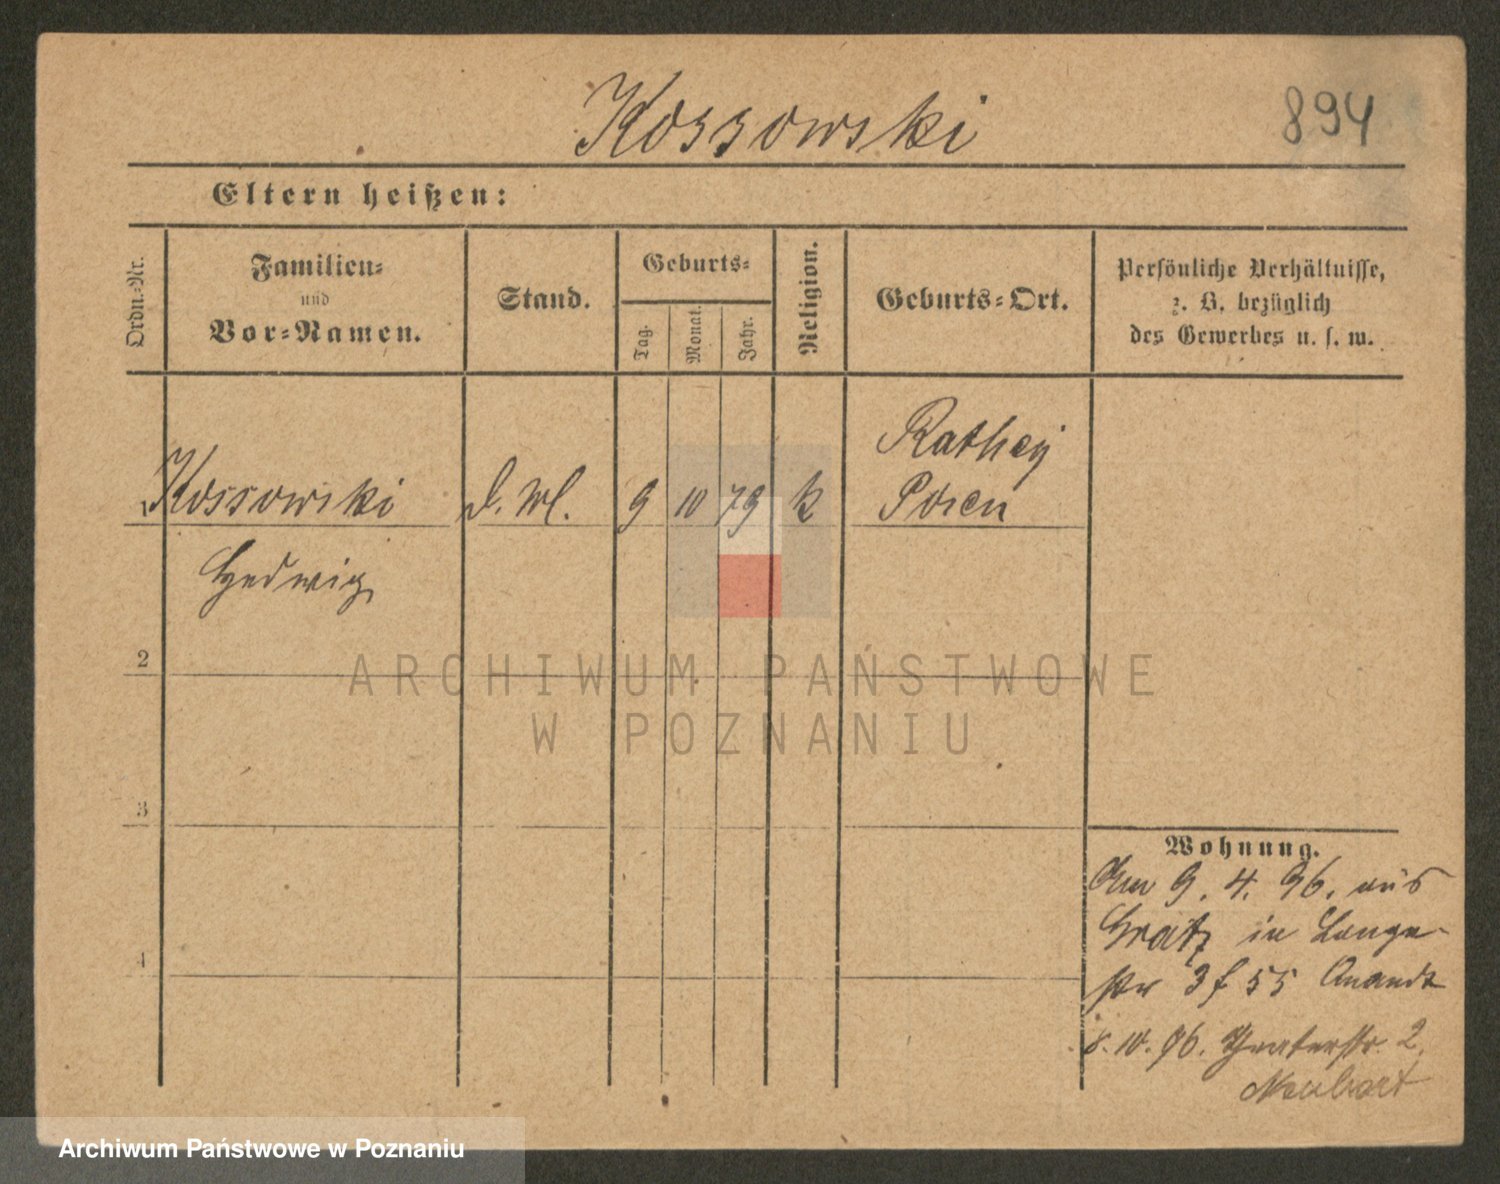 Kossowski
894
Eltern heißen:
Ordn.-Nr.
Familien-
und
Vor-Namen.
Stand.
Geburts-
Tag.
Monat.
Jahr.
Religion.
Geburts-Ort.
Persönliche Verhältnisse,
z. B. bezüglich
des Gewerbes u. s. w.
1 Kossowski
Hedwig
9 10 79 k
Rathay
Posen
2
3
4
Wohnung.
Am 9. 4. 96. aus
Gratz in Lange-
str 3 f 55
8. 10. 96. Theaterstr. 2.
Neubart
ARCHIWUM PAŃSTWOWE
W POZNANIU
Archiwum Państwowe w Poznaniu